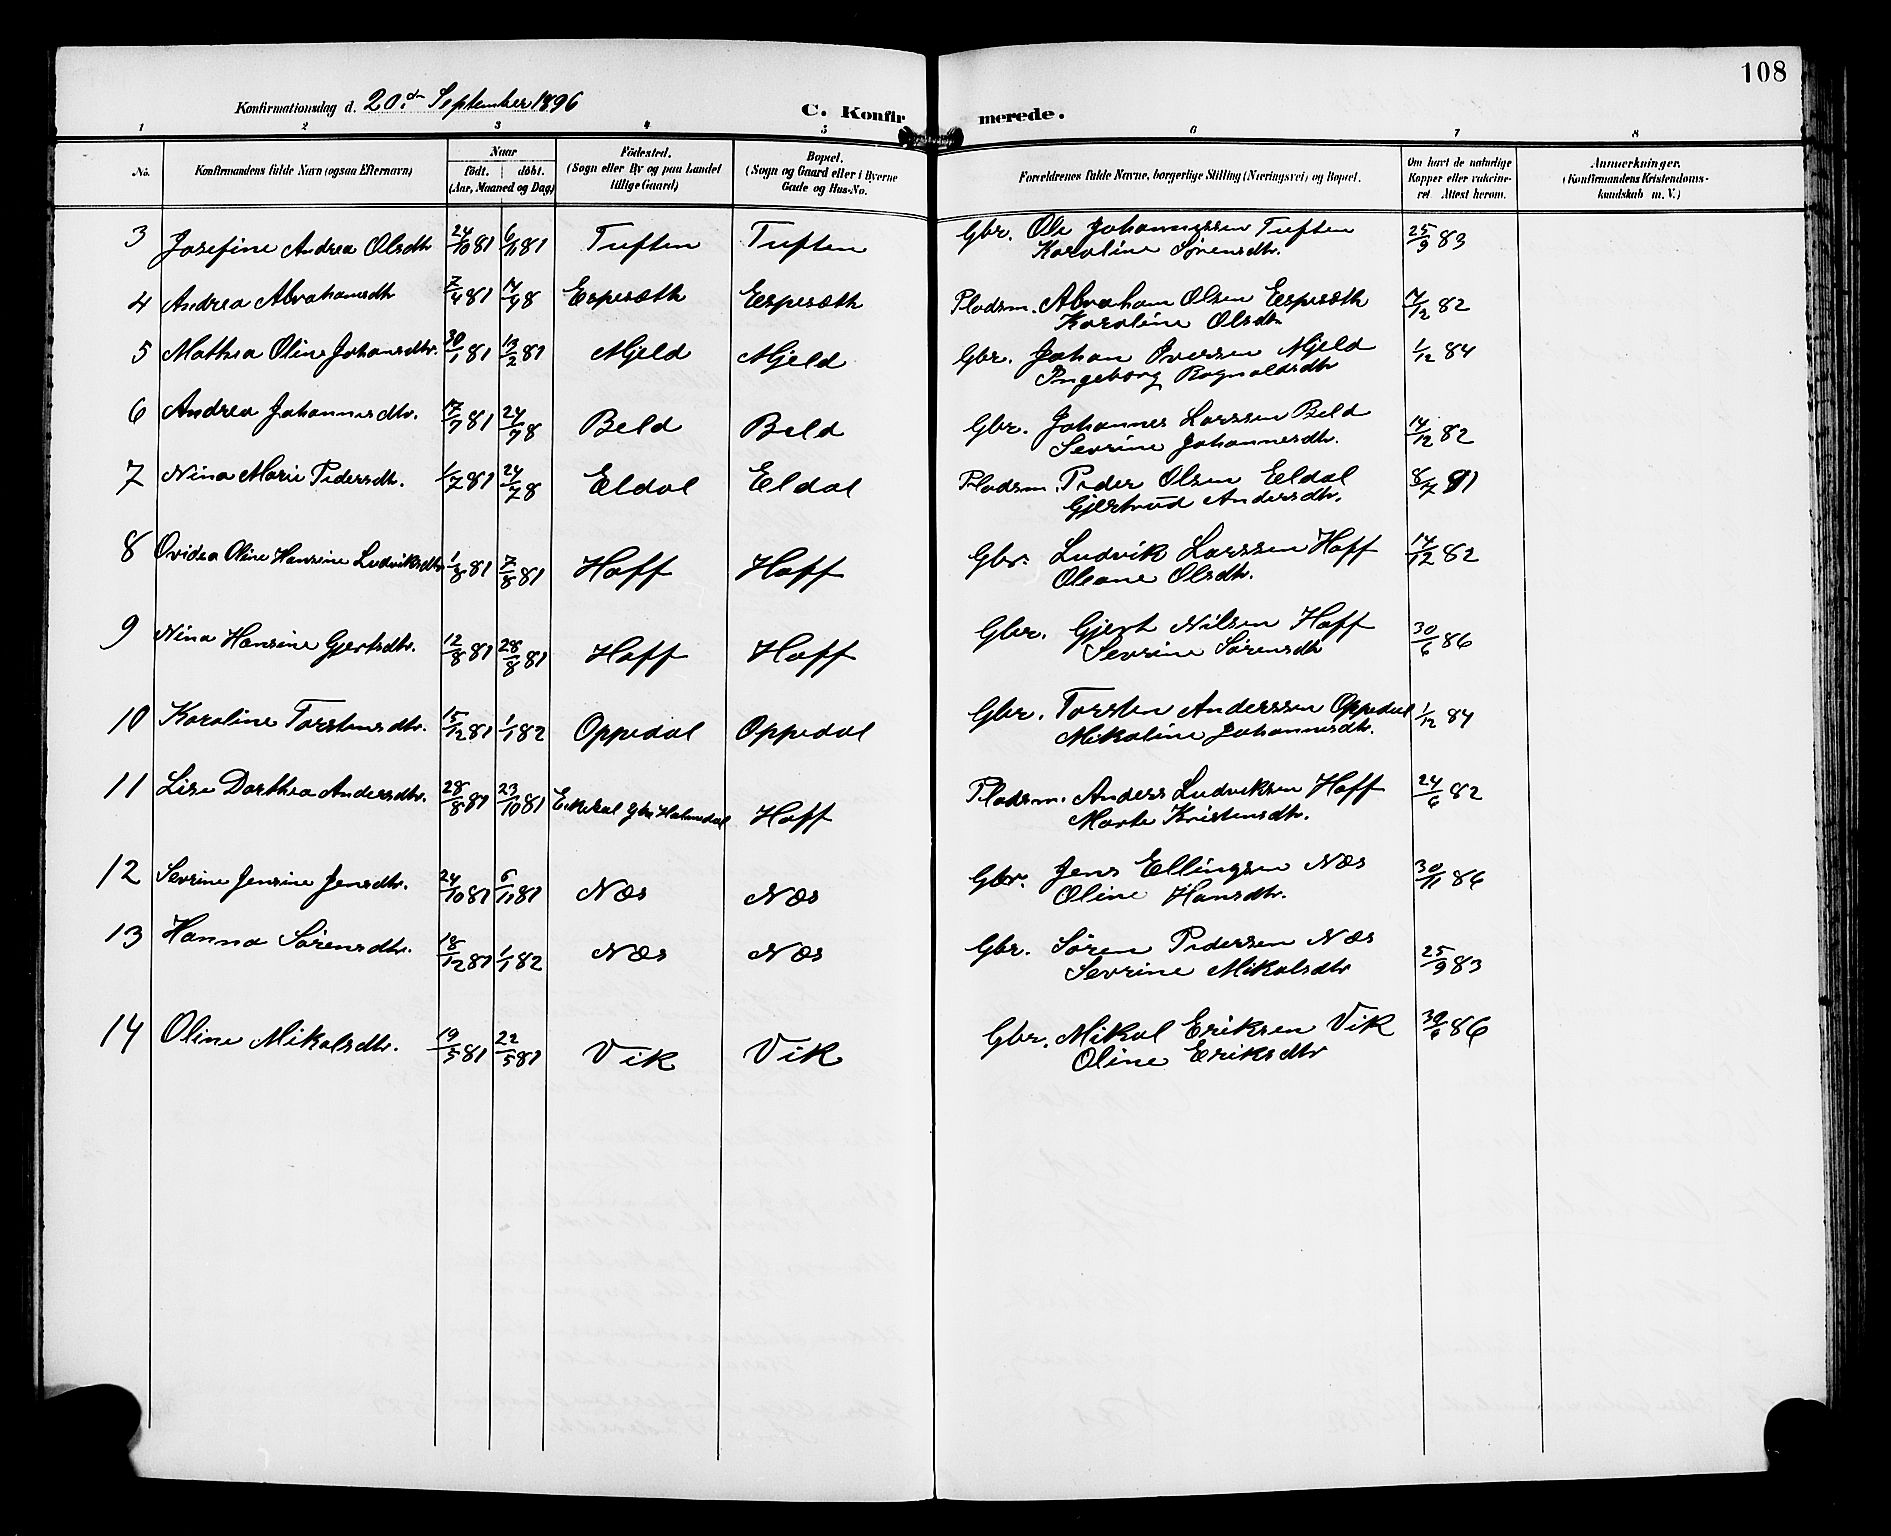 108
Konfirmationsdag d. 20.de September 1896
C. Konfirmerede.
1 2 3 4 5 6 7 8
No. Konfirmandens fulde Navn (ogsaa Efternavn) Naar födt. döbt. (Aar, Maaned og Dag) Födested. (Sogn eller By og paa Landet tillige Gaard) Bopæl. (Sogn og Gaard eller i Byerne Gade og Hus-No. Forældrenes fulde Navne, borgerlige Stilling (Næringsvei) og Bopæl. Om havt de naturlige Kopper eller vakcineret. Attest herom. Anmærkninger. (Konfirmandens Kristendomskundskab m. V.)
3 Josefine Andrea Olsdtr 24/10 81 6/11 81 Tuften Tuften Gbr. Ole Johannessen Tuften 25/9 83
Karoline Sørensdtr.
4 Andrea Abrahamsdtr 7/4 81 17/4 8 Espesæth Espesæth Pladsm. Abraham Olsen Espesæth 17/12 82
Karoline Olsdtr
5 Mathea Oline Johansdtr. 30/1 81 13/2 81 Mjeld Mjeld Gbr. Johan Iversen Mjeld 1/12 84
Ingeborg Rognaldsdtr
6 Andrea Johannesdtr. 17/7 81 24/7 8 Beld Beld Gbr. Johannes Larssen Beld 14/12 82
Sevrine Johannesdtr.
7 Nina Marie Pedersdtr. 1/7 81 24/7 8 Eldal Eldal Pladsm. Peder Olsen Eldal 8/7 91
Gjertrud Andersdtr.
8 Ovidea Oline Hansine Ludviksdtr 1/8 81 7/8 81 Hoff Hoff Gbr. Ludvik Larssen Hoff 14/12 82
Oleane Olsdtr.
9 Nina Hansine Gjertsdtr. 12/8 81 28/8 81 Hoff Hoff Gbr. Gjert Nilsen Hoff 30/6 86
Sevrine Sørensdtr
10 Karoline Torstensdtr. 15/12 81 1/1 82 Oppedal Oppedal Gbr. Torsten Anderssen Oppedal 1/12 84
Mikaline Johannesdtr.
11 Lise Dorthea Andersdtr. 28/8 81 23/10 81 Holmedal Hoff Pladsm. Anders Ludviksen Hoff 24/6 82
Marte Kristensdtr.
12 Sevrine Jensine Jensdtr. 24/10 81 6/11 81 Næs Næs Gbr. Jens Ellingsen Næs 30/11 86
Oline Hansdtr.
13 Hanna Sørensdtr. 18/12 81 1/1 82 Næs Næs Gbr. Søren Pedersen Næs 25/9 83
Sevrine Mikalsdtr
14 Oline Mikalsdtr. 19/5 81 22/5 81 Vik Vik Gbr. Mikal Eriksen Vik 30/6 86
Oline Eriksdtr